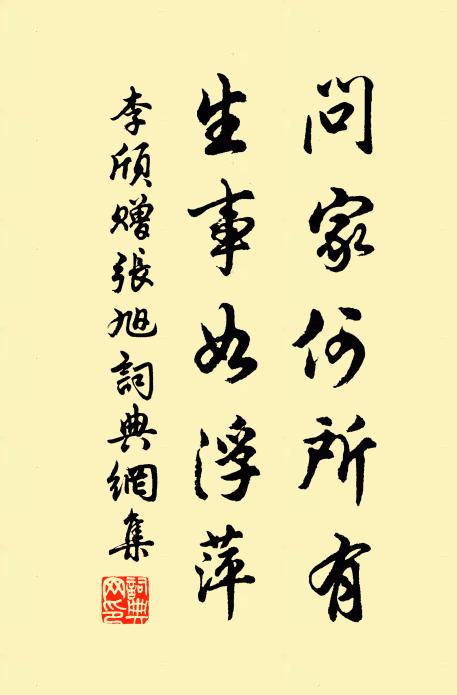 問家何所有
生事如浮萍
李頎贈張旭詞典網集
詞典網印